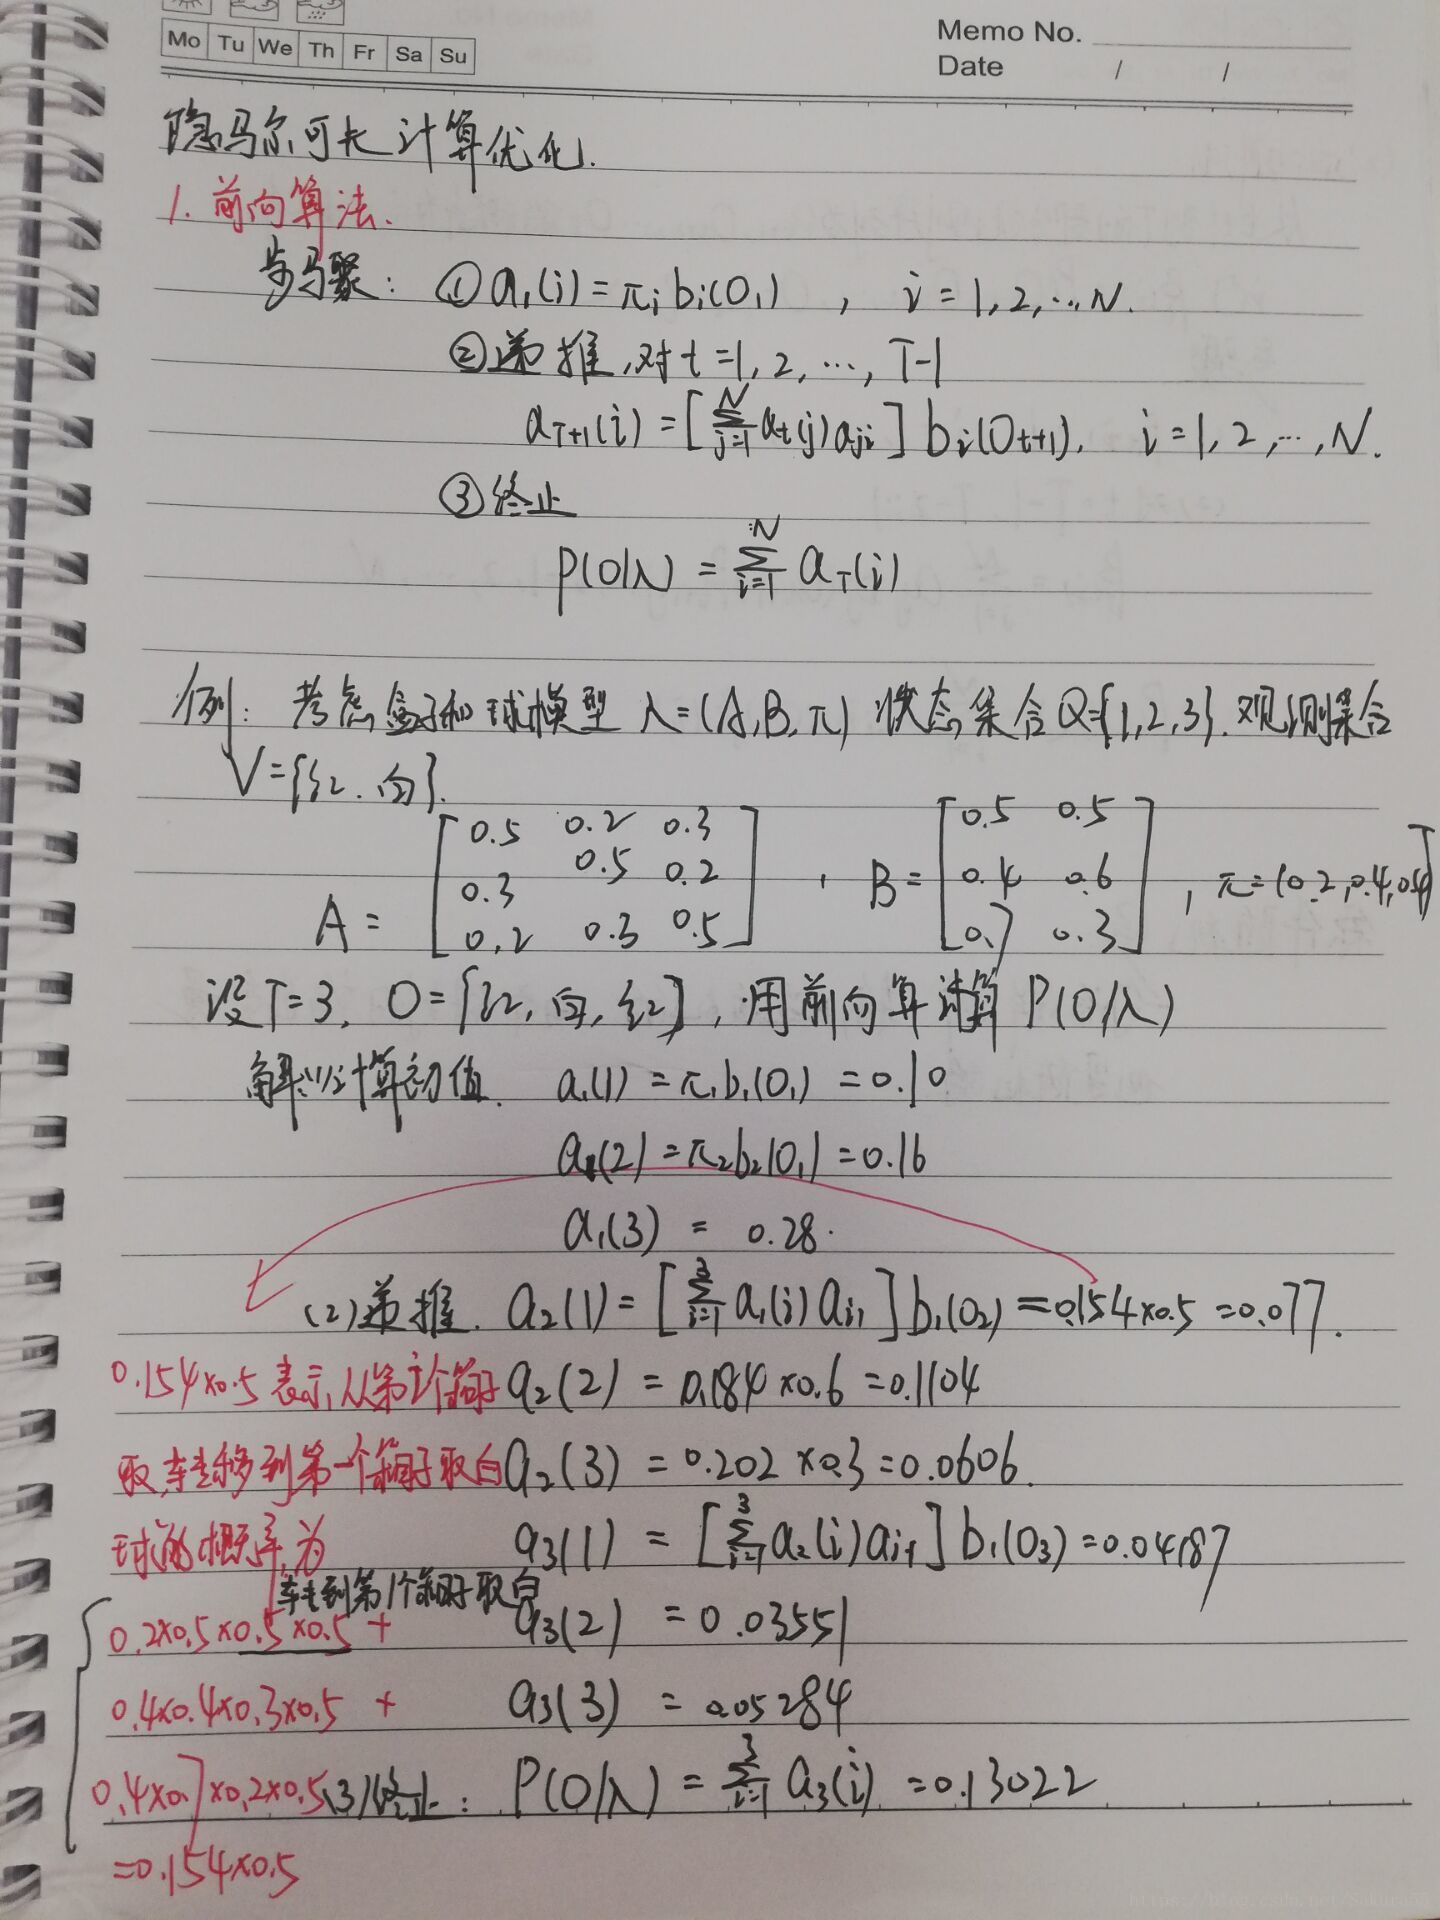 Mo Tu We Th Fr Sa Su
Memo No.
Date / /
隐马尔可夫计算优化.
1. 前向算法.
步骤: ① a₁(i) = π_i b_i(O₁) , i = 1, 2, …, N.
② 递推, 对 t = 1, 2, …, T-1
a_{T+1}(i) = [∑_{j=1}^{N} a_t(j) a_{ji}] b_i(O_{t+1}), i = 1, 2, …, N.
③ 终止
P(O/λ) = ∑_{i=1}^{N} a_T(i)
例: 考虑盒子和球模型 λ = (A, B, π) 状态集合 Q={1, 2, 3}. 观测集合
V = {红. 白}.
A = [0.5 0.2 0.3
0.3 0.5 0.2
0.2 0.3 0.5]
, B = [0.5 0.5
0.4 0.6
0.7 0.3]
, π = (0.2, 0.4, 0.4)^T
设 T = 3, O = {红, 白, 红}, 用前向算法计算 P(O/λ)
解: (1) 计算初值. a₁(1) = π₁b₁(O₁) = 0.10
a₁(2) = π₂b₂(O₁) = 0.16
a₁(3) = 0.28.
(2) 递推. a₂(1) = [∑_{i=1}^{3} a₁(i) a_{i1}] b₁(O₂) = 0.154×0.5 = 0.077.
0.154×0.5 表示, 从第i个箱子
a₂(2) = 0.184×0.6 = 0.1104
取, 转移到第一个箱子取白
a₂(3) = 0.202×0.3 = 0.0606.
球的概率, 为
a₃(1) = [∑_{i=1}^{3} a₂(i) a_{i1}] b₁(O₃) = 0.04187
转到第1个箱子取白
0.2×0.5×0.5×0.5 +
a₃(2) = 0.03551
0.4×0.4×0.3×0.5 +
a₃(3) = 0.05284
0.4×0.7×0.2×0.5
(3) 终止: P(O/λ) = ∑_{i=1}^{3} a₃(i) = 0.13022
=0.154×0.5